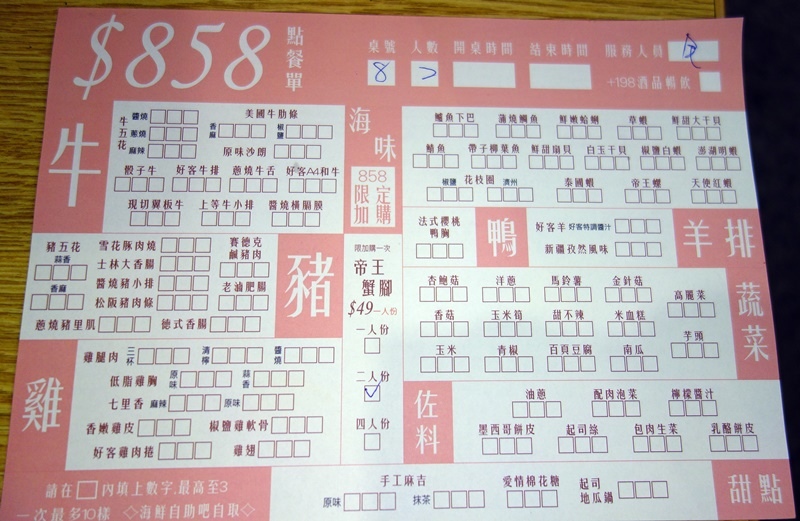 $858 點餐單
桌號 人數 開桌時間 結束時間 服務人員
8 2
+198酒品暢飲
牛
牛五花 醬燒 蔥燒 麻辣
美國牛肋條
香麻 椒鹽
原味沙朗
骰子牛 好客牛排 蔥燒牛舌 好客A4和牛
現切翼板牛 上等牛小排 醬燒橫膈膜
海味
鱸魚下巴 蒲燒鯛魚 鮮嫩蛤蜊 草蝦 鮮甜大干貝
鮭魚 帶子柳葉魚 鮮甜扇貝 白玉干貝 椒鹽白蝦 澎湖明蝦
椒鹽 花枝圈 濟州 泰國蝦 帝王螺 天使紅蝦
858限定加購
限加購一次
帝王蟹腳
$49 一人份
一人份
二人份
四人份
鴨
法式櫻桃鴨胸
羊排
好客羊 好客特調醬汁
新疆孜然風味
豬
豬五花 蒜香 香麻
雪花豚肉燒
士林大香腸
醬燒豬小排
松阪豬肉條
賽德克鹹豬肉
老滷肥腸
蔥燒豬里肌 德式香腸
蔬菜
杏鮑菇 洋蔥 馬鈴薯 金針菇 高麗菜
香菇 玉米筍 甜不辣 米血糕
玉米 青椒 百頁豆腐 南瓜 芋頭
雞
雞腿肉 三杯 清檸 醬燒
低脂雞胸 原味 蒜香
七里香 麻辣 原味
香嫩雞皮 椒鹽雞軟骨
好客雞肉捲 雞翅
佐料
油蔥 配肉泡菜 檸檬醬汁
墨西哥餅皮 起司絲 包肉生菜 乳酪餅皮
請在□內填上數字,最高至3
一次最多10樣 ◇海鮮自助吧自取◇
手工麻吉 原味 抹茶
愛情棉花糖
起司地瓜鍋
甜點